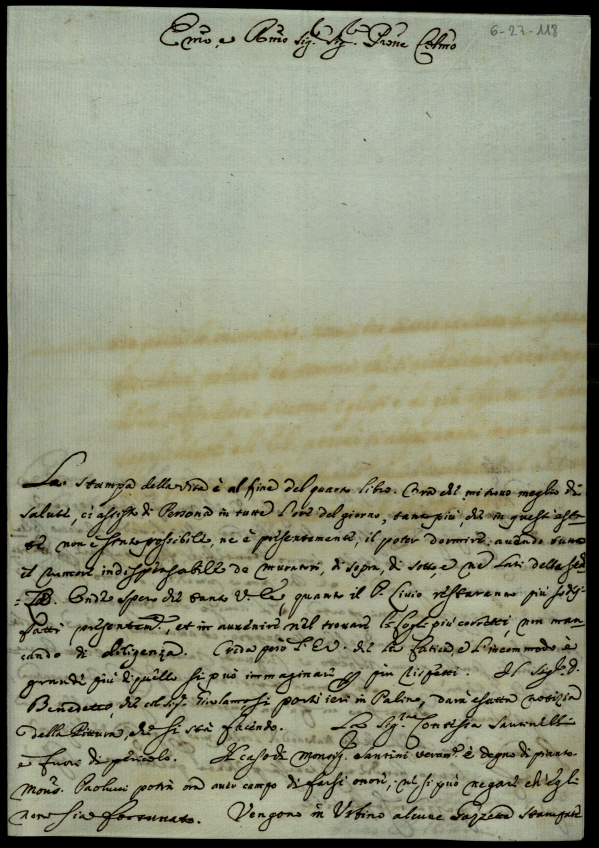 6-27-118
Emo, e Rmo Sig.r Sig.r Prone Colmo
La stampa della Vita è al fine del quarto libro. Ora che mi trovo meglio di
salute, ci assisto di Persona in tutte l'ore del giorno, tanto più, che in questi
non è possibile, ne è presentemente, il poter dormire; avendo
il rumore indispensabile de muratori, di sopra, di sotto, e ne lati della
Onde spero che tanto V. quanto il P. Livio resteranno più sodis-
fatti presentem.e, et in avvenire nel trovare le fogli più corretti, non man-
cando di diligenza. Creda però che la fatica e l'incommodo è
grande più di quello si può immaginare per più rispetti. Il Sig.r D.
Benedetto, che col Sig.r Girolamo si portò ieri in darà esatta notizia
della Pittura, che si stà facendo. La Sig.ra Contessa
è fuori di pericolo. Il caso di Monsig.r Santini veram.e è degno di pianto.
Mons.r Paolucci potrà ora aver campo di farsi onore; nè si può negare ch'Egli
non sia fortunato. Vengono in Urbino alcune Gazzette stampate